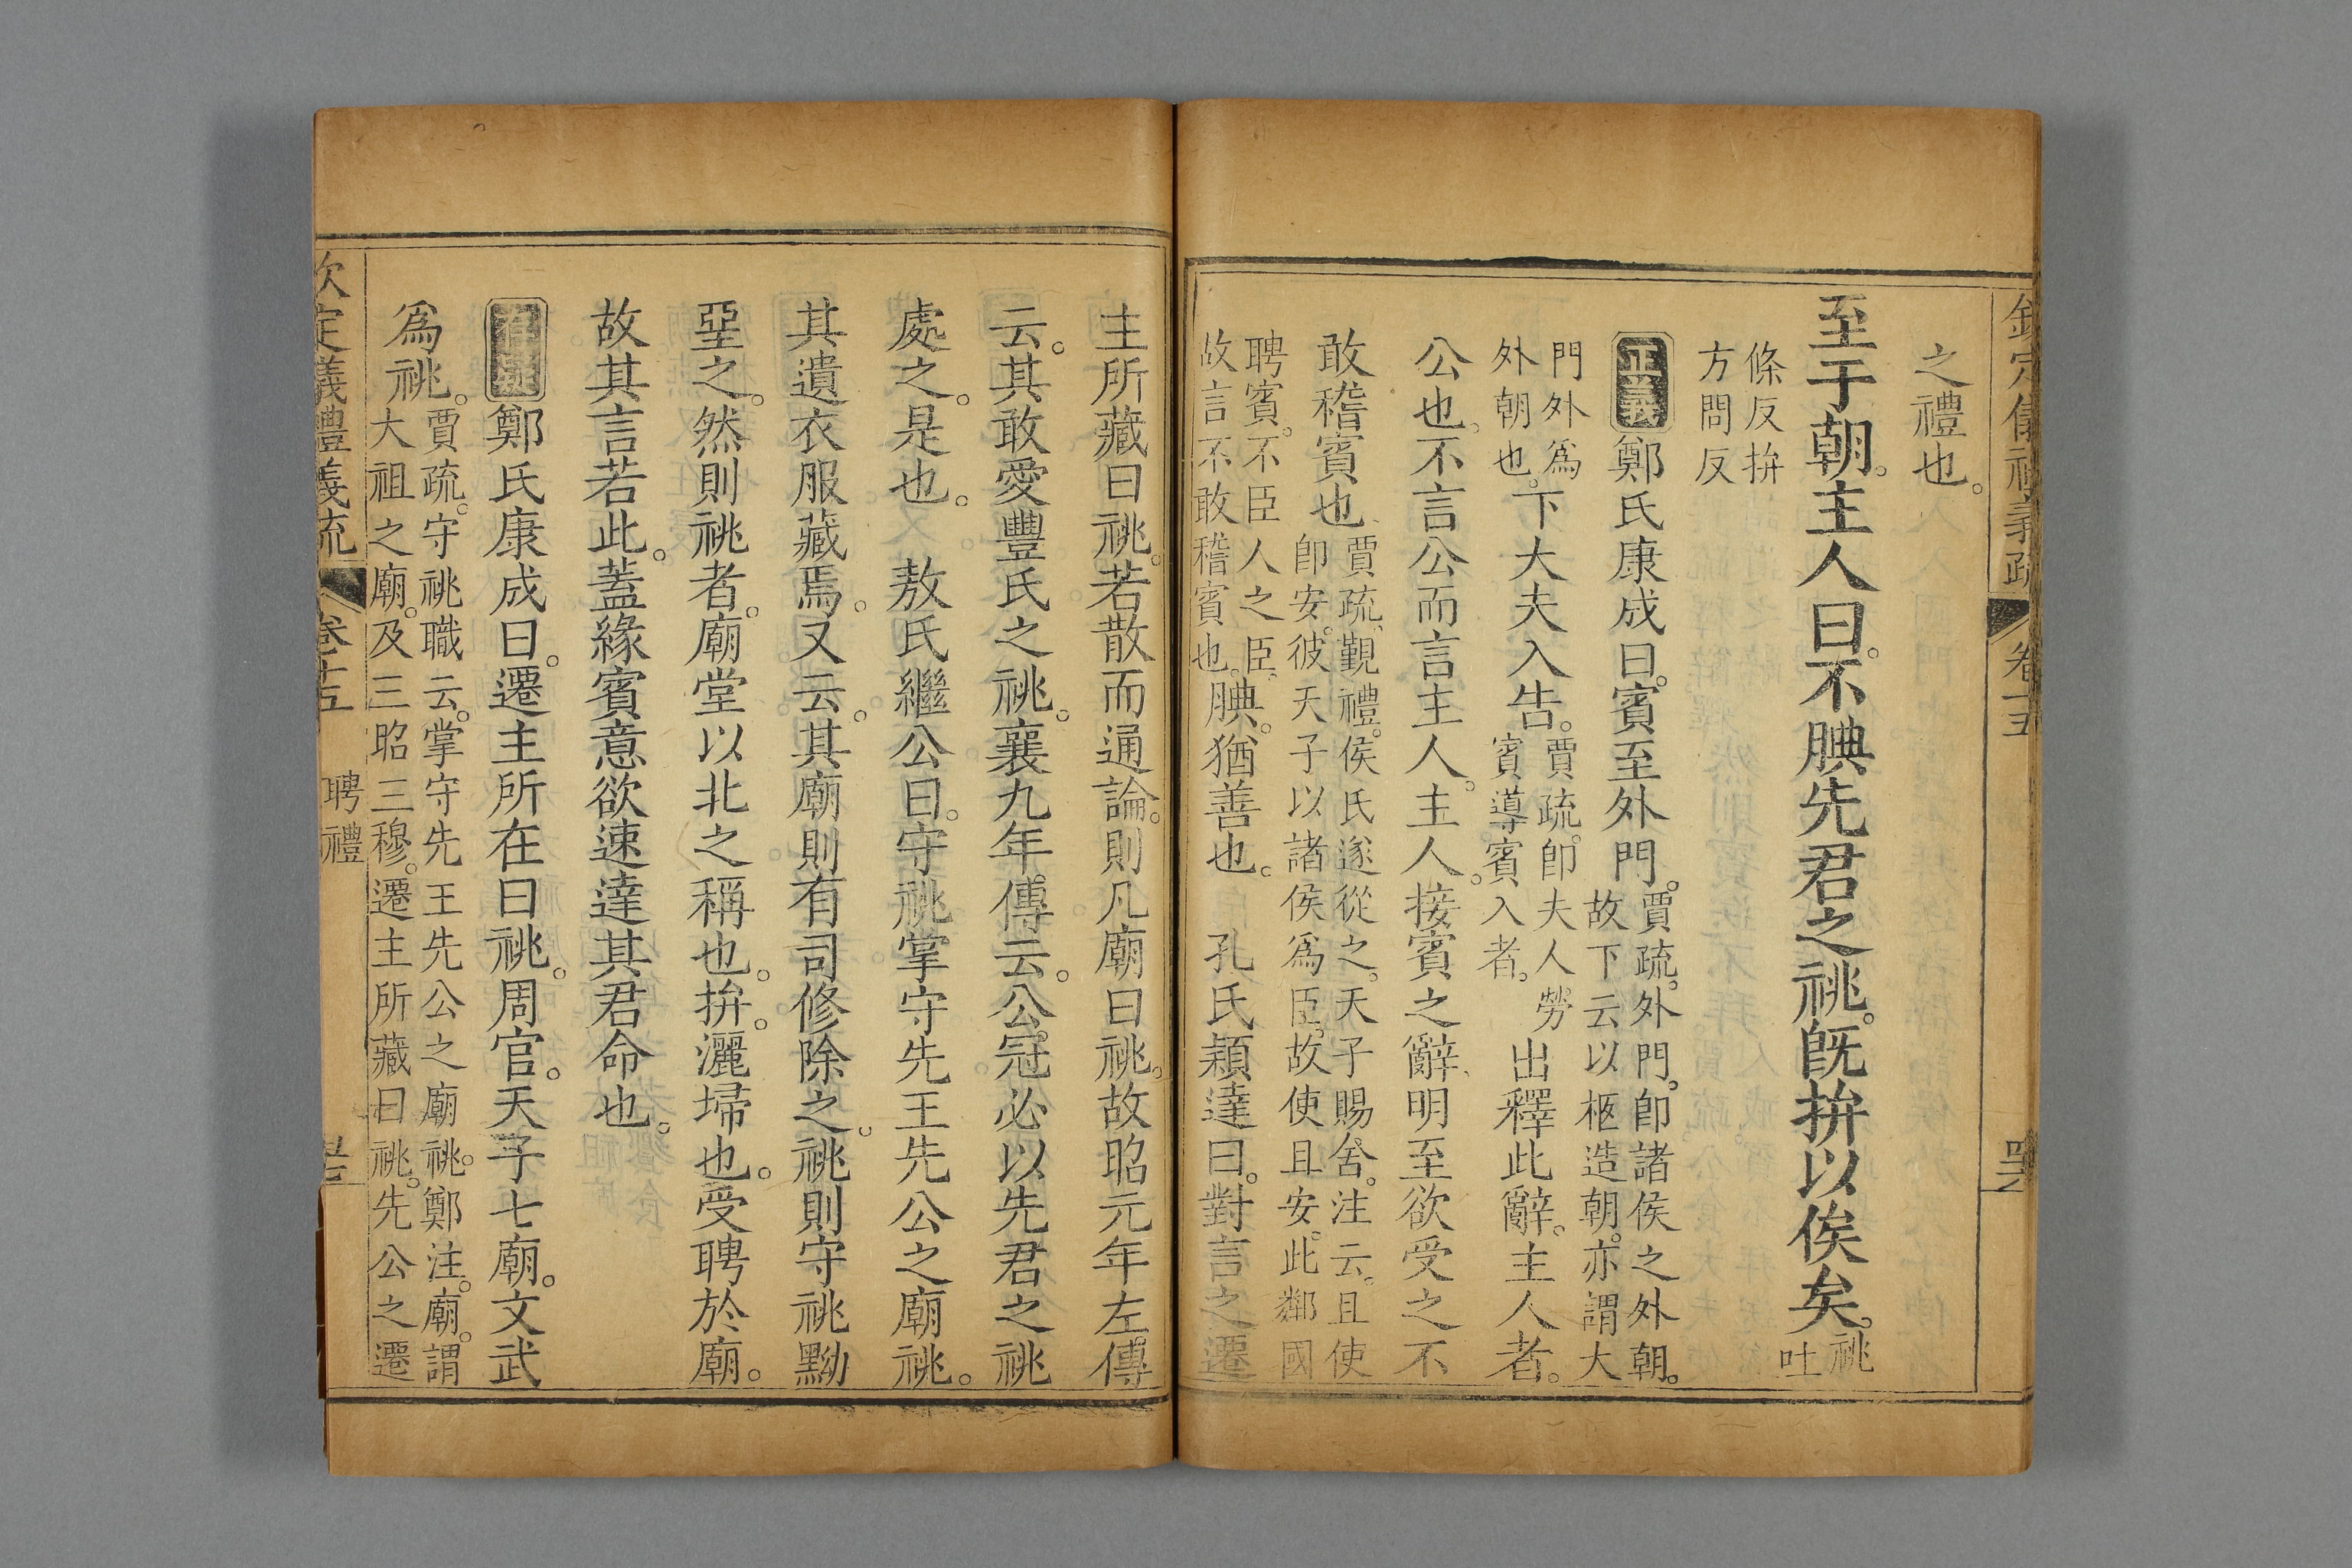 欽定儀禮義疏 卷十五
之禮也。
至于朝。主人曰。不腆先君之祧。旣拚以俟矣。祧吐
條反拚
方問反
正義鄭氏康成曰。賓至外門。賈疏。外門。卽諸侯之外朝。
故下云以柩造朝。亦謂大
門外爲
外朝也。下大夫入告。賈疏。卽夫人勞
賓導賓入者。出釋此辭。主人者。
公也。不言公而言主人。主人。接賓之辭、明至欲受之不
敢稽賓也、賈疏、覲禮。侯氏遂從之。天子賜舍。注云。且使
卽安。彼天子以諸侯爲臣。故使且安。此鄰國
聘賓。不臣人之臣、
故言不敢稽賓也。腆。猶善也。 孔氏穎達曰。對言之。遷
主所藏曰祧。若散而通論。則凡廟曰祧。故昭元年左傳
云。其敢愛豐氏之祧。襄九年。傳云。公冠必以先君之祧
處之。是也。 敖氏繼公曰。守祧掌守先王先公之廟祧。
其遺衣服藏焉。又云。其廟則有司修除之。祧則守祧黝
堊之。然則祧者。廟堂以北之稱也。拚。灑埽也。受聘於廟。
故其言若此。蓋緣賓意欲速達其君命也。
存疑鄭氏康成曰。遷主所在曰祧。周官。天子七廟。文武
爲祧。賈疏。守祧職云。掌守先王先公之廟祧。鄭注。廟。謂
大祖之廟。及三昭三穆。遷主所藏曰祧。先公之遷
欽定儀禮義疏 卷十五 聘禮